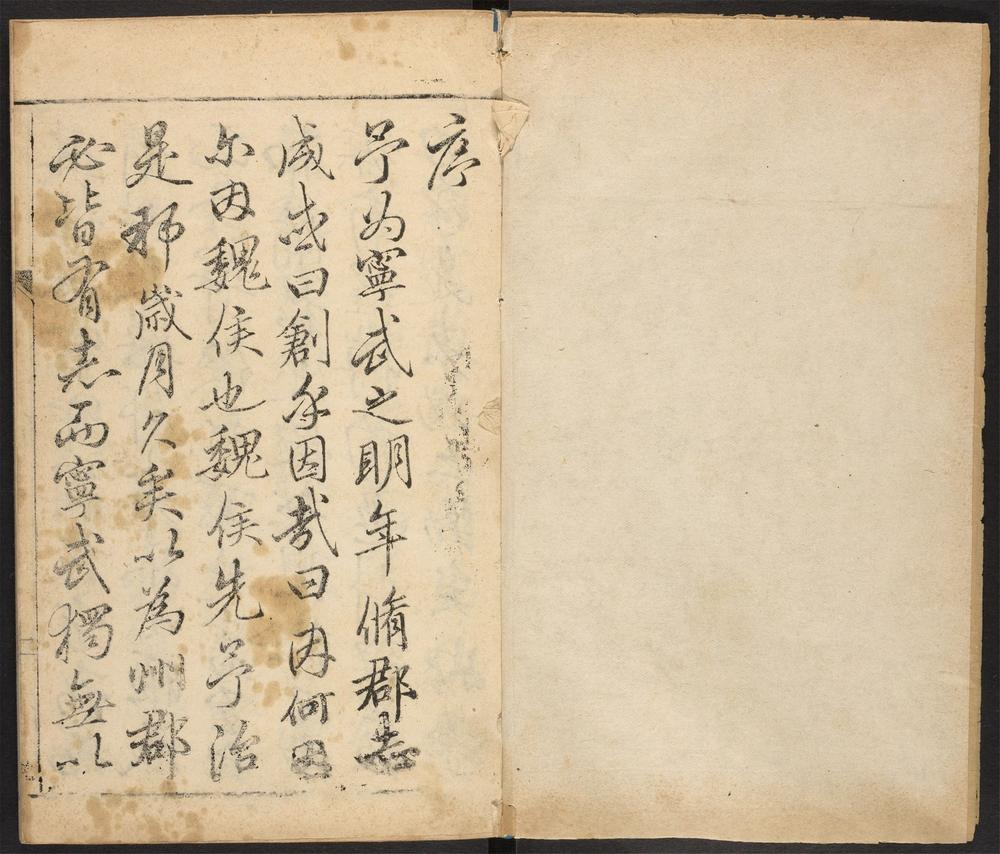 序
予为寧武之明年脩郡志
成或曰創乎因哉曰因何因
尔因魏侯也魏侯先予治
是邦歲月久矣以為州郡
必皆有志而寧武獨無以